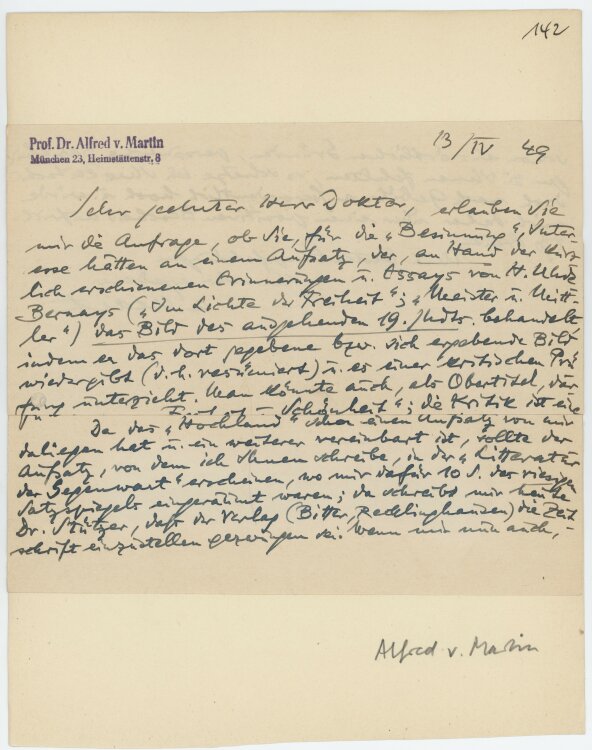 142
Prof. Dr. Alfred v. Martin
München 23, Heimstättenstr. 8
13/IV 49
Sehr geehrter Herr Doktor, erlauben Sie
mir die Anfrage, ob Sie, für die „Besinnung“, Inter-
esse hätten an einem Aufsatz, der, an Hand der kürz-
lich erschienenen Erinnerungen u. Essays von H. Uhde-
Bernays („Im Lichte der Freiheit“; „Meister u. Mitt-
ler“) das Bild des ausgehenden 19. Jhdts. behandelt
indem er das dort gegebene bzw. sich ergebende Bild
wiedergibt (d. h. resümiert) u. es einer kritischen Prü-
fung unterzieht. Man könnte auch, als Obertitel, dar-
Schönheit“; die Kritik ist eine
Da das „Hochland“ schon einen Aufsatz von mir
daliegen hat u. ein weiterer vereinbart ist, sollte der
Aufsatz, von dem ich Ihnen schreibe, in der „Litteratur
der Gegenwart“ erscheinen, wo mir dafür 10 S. des
Satzspiegels eingeräumt waren; da schreibt mir heute
Dr. Stützer, daß der Verlag (Bitter, Recklinghausen) die Zeit-
schrift einzustellen gezwungen sei. Wenn mir nun auch,
Alfred v. Martin